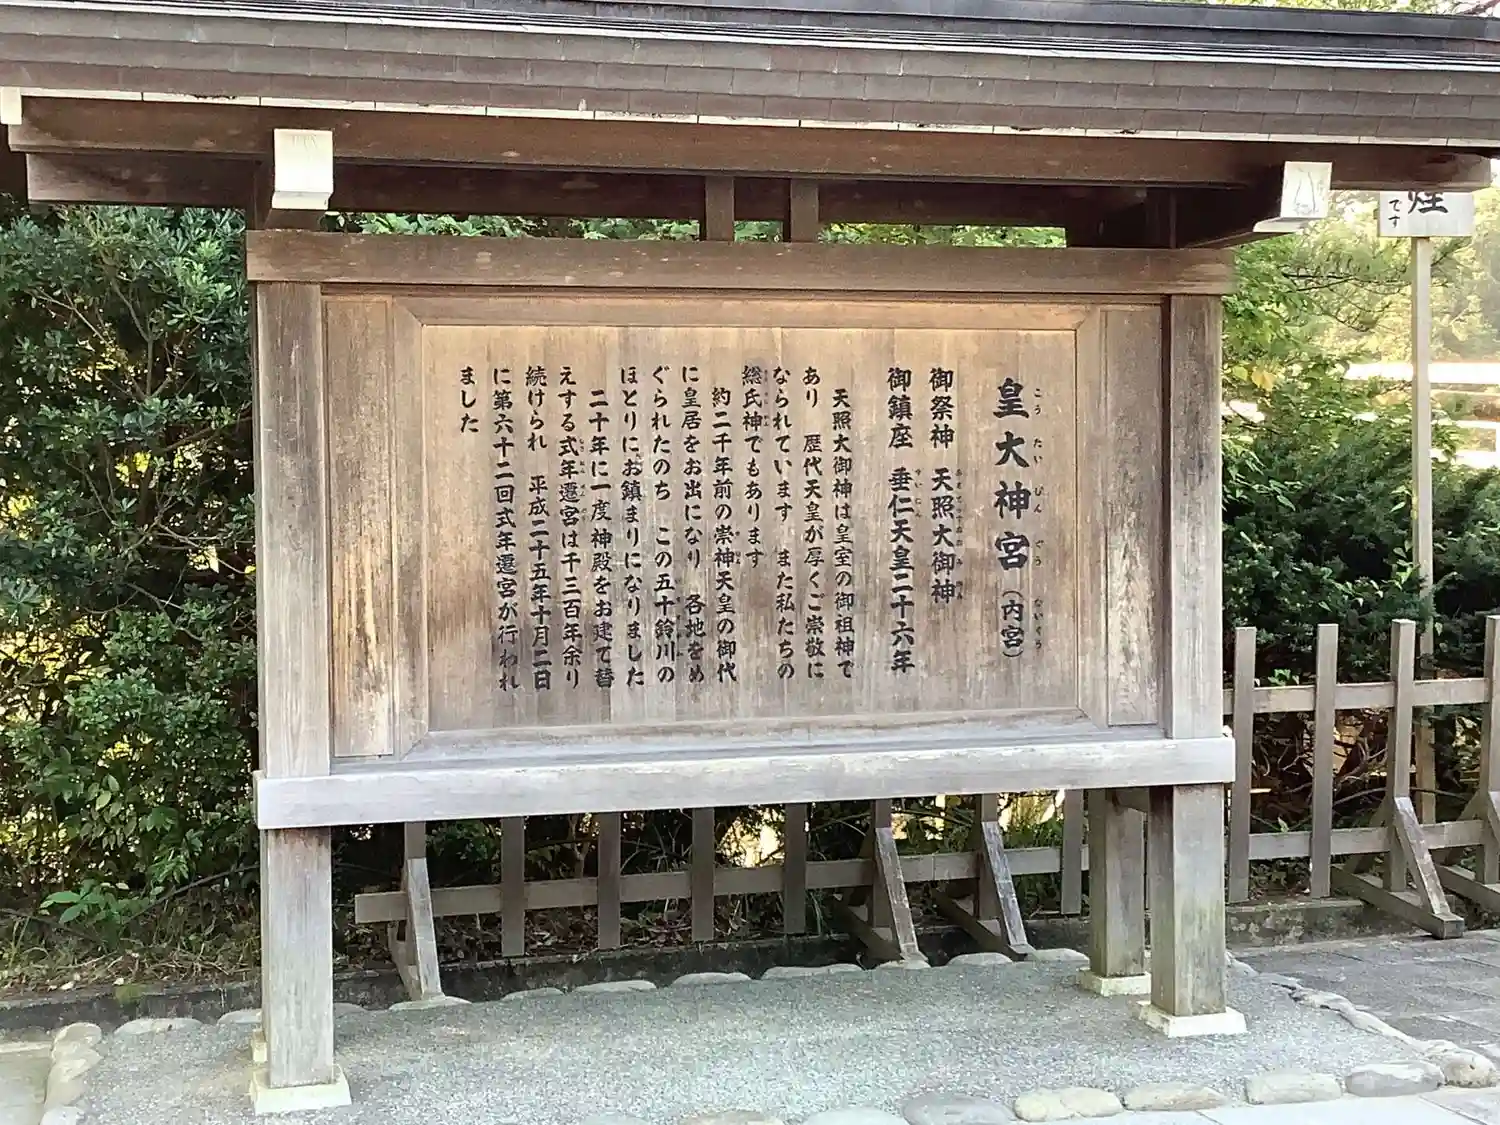 皇大神宮（内宮）
こうたいじんぐう　ないくう
御祭神　天照大御神
あまてらすおおみかみ
御鎮座　垂仁天皇二十六年
すいにん
天照大御神は皇室の御祖神で
あり　歴代天皇が厚くご崇敬に
なられています　また私たちの
総氏神でもあります
約二千年前の崇神天皇の御代
に皇居をお出になり　各地をめ
ぐられたのち　この五十鈴川の
ほとりにお鎮まりになりました
二十年に一度神殿をお建て替
えする式年遷宮は千三百年余り
続けられ　平成二十五年十月二日
に第六十二回式年遷宮が行われ
ました
煙
です